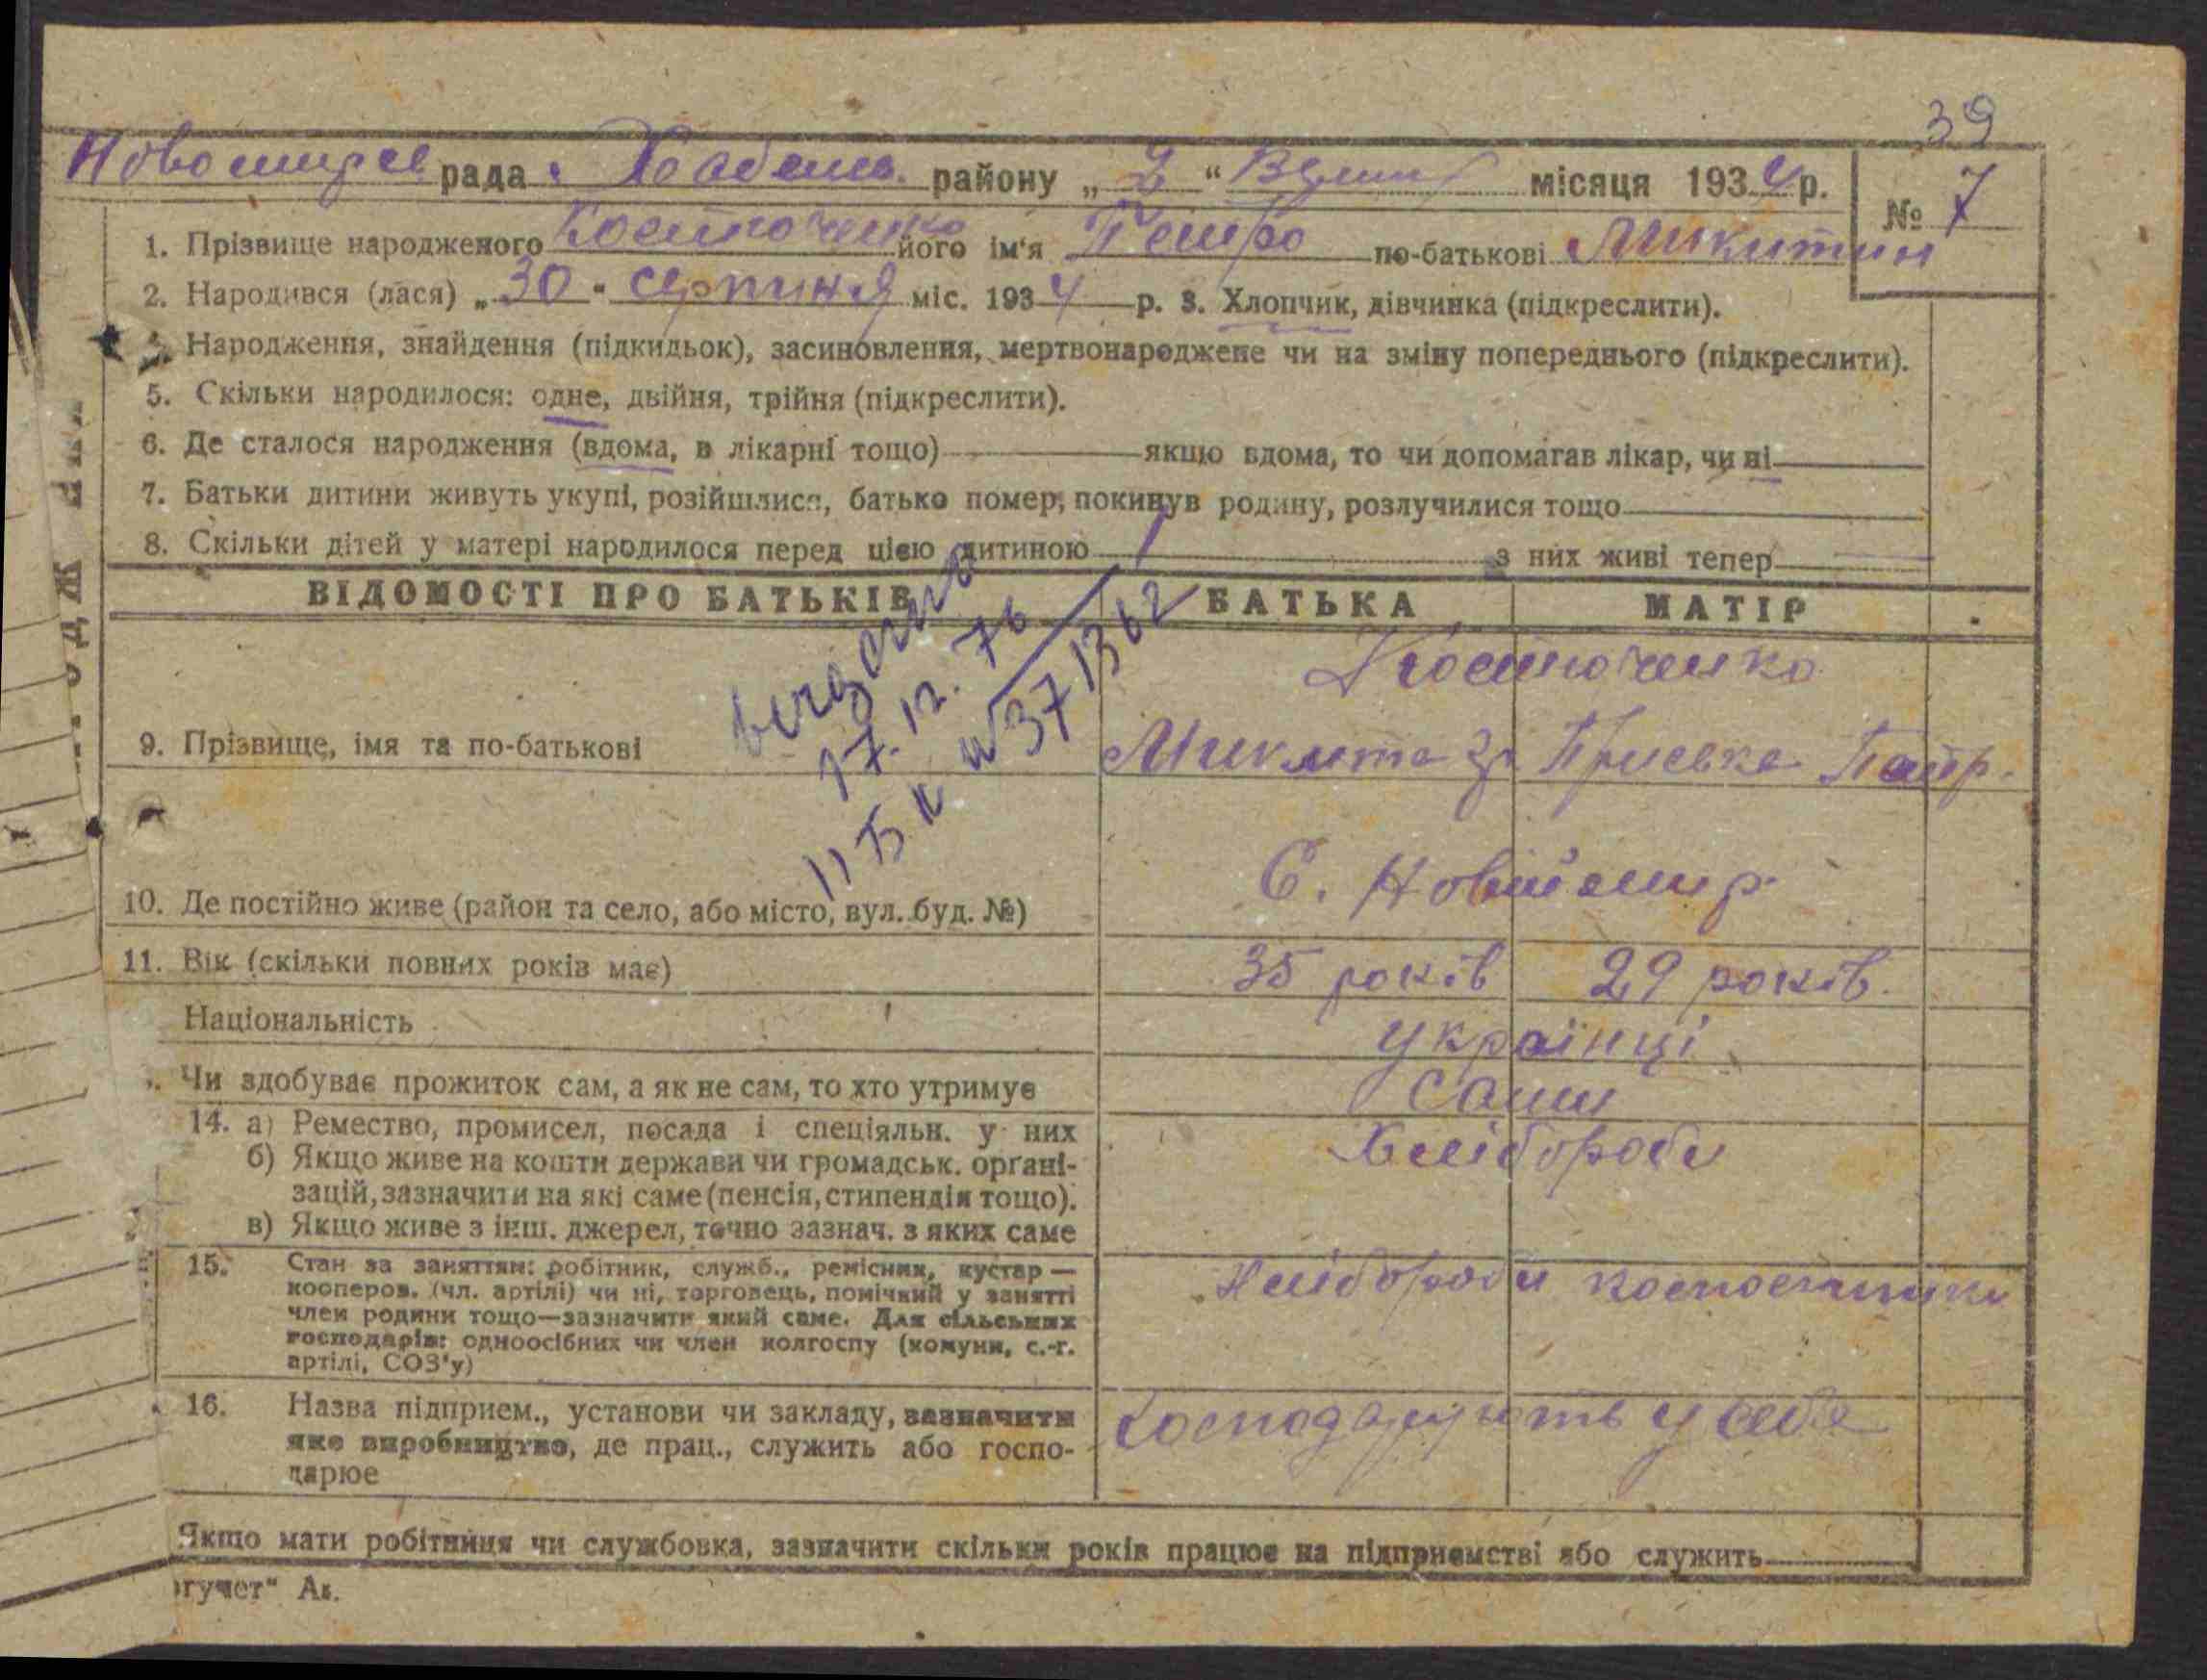 39
Новомирсь рада Хабенсь. району „ 2 “ Вересня місяця 1934 р.
№ 7
1. Прізвище народженого Костюченко його ім'я Петро по-батькові Микитин
2. Народився (лася) „ 30 " серпння міс. 1934 р. 3. Хлопчик, дівчинка (підкреслити).
Народження, знайдення (підкидьок), засиновлення, мертвонароджене чи на зміну попереднього (підкреслити).
5. Скільки народилося: одне, двійня, трійня (підкреслити).
6. Де сталося народження (вдома, в лікарні тощо) якщо вдома, то чи допомагав лікар, чи ні
7. Батьки дитини живуть укупі, розійшлися, батько помер, покинув родину, розлучилися тощо
8. Скільки дітей у матері народилося перед цією дитиною 1 з них живі тепер
ВІДОМОСТІ ПРО БАТЬКІВ БАТЬКА МАТІР
видано
17.12.76
II БК № 371362
Костюченко
9. Прізвище, імя та по-батькові Микита Приська Петр.
10. Де постійно живе (район та село, або місто, вул. буд. №) С. Новий мир
11. Вік (скільки повних років має) 35 років 29 років.
Національність українці
Чи здобуває прожиток сам, а як не сам, то хто утримує Сами
14. а) Ремество, промисел, посада і спеціяльн. у них Хлібороби
б) Якщо живе на кошти держави чи громадськ. органі-
зацій, зазначити на які саме (пенсія, стипендія тощо).
в) Якщо живе з інш. джерел, точно зазнач. з яких саме
15. Стан за заняттям: робітник, служб., ремісник, кустар —
кооперов. (чл. артілі) чи ні, торговець, помічний у занятті
член родини тощо—зазначити який саме. Для сільських
господарів: одноосібних чи член колгоспу (комуни, с.-г.
артілі, СОЗ'у)
Хлібороби
16. Назва підприєм., установи чи закладу, зазначити
яке виробництво, де прац., служить або госпо-
дарює
господарують у себе
Якщо мати робітниця чи службовка, зазначити скільки років працює на підприємстві або служить
гучет" Ак.